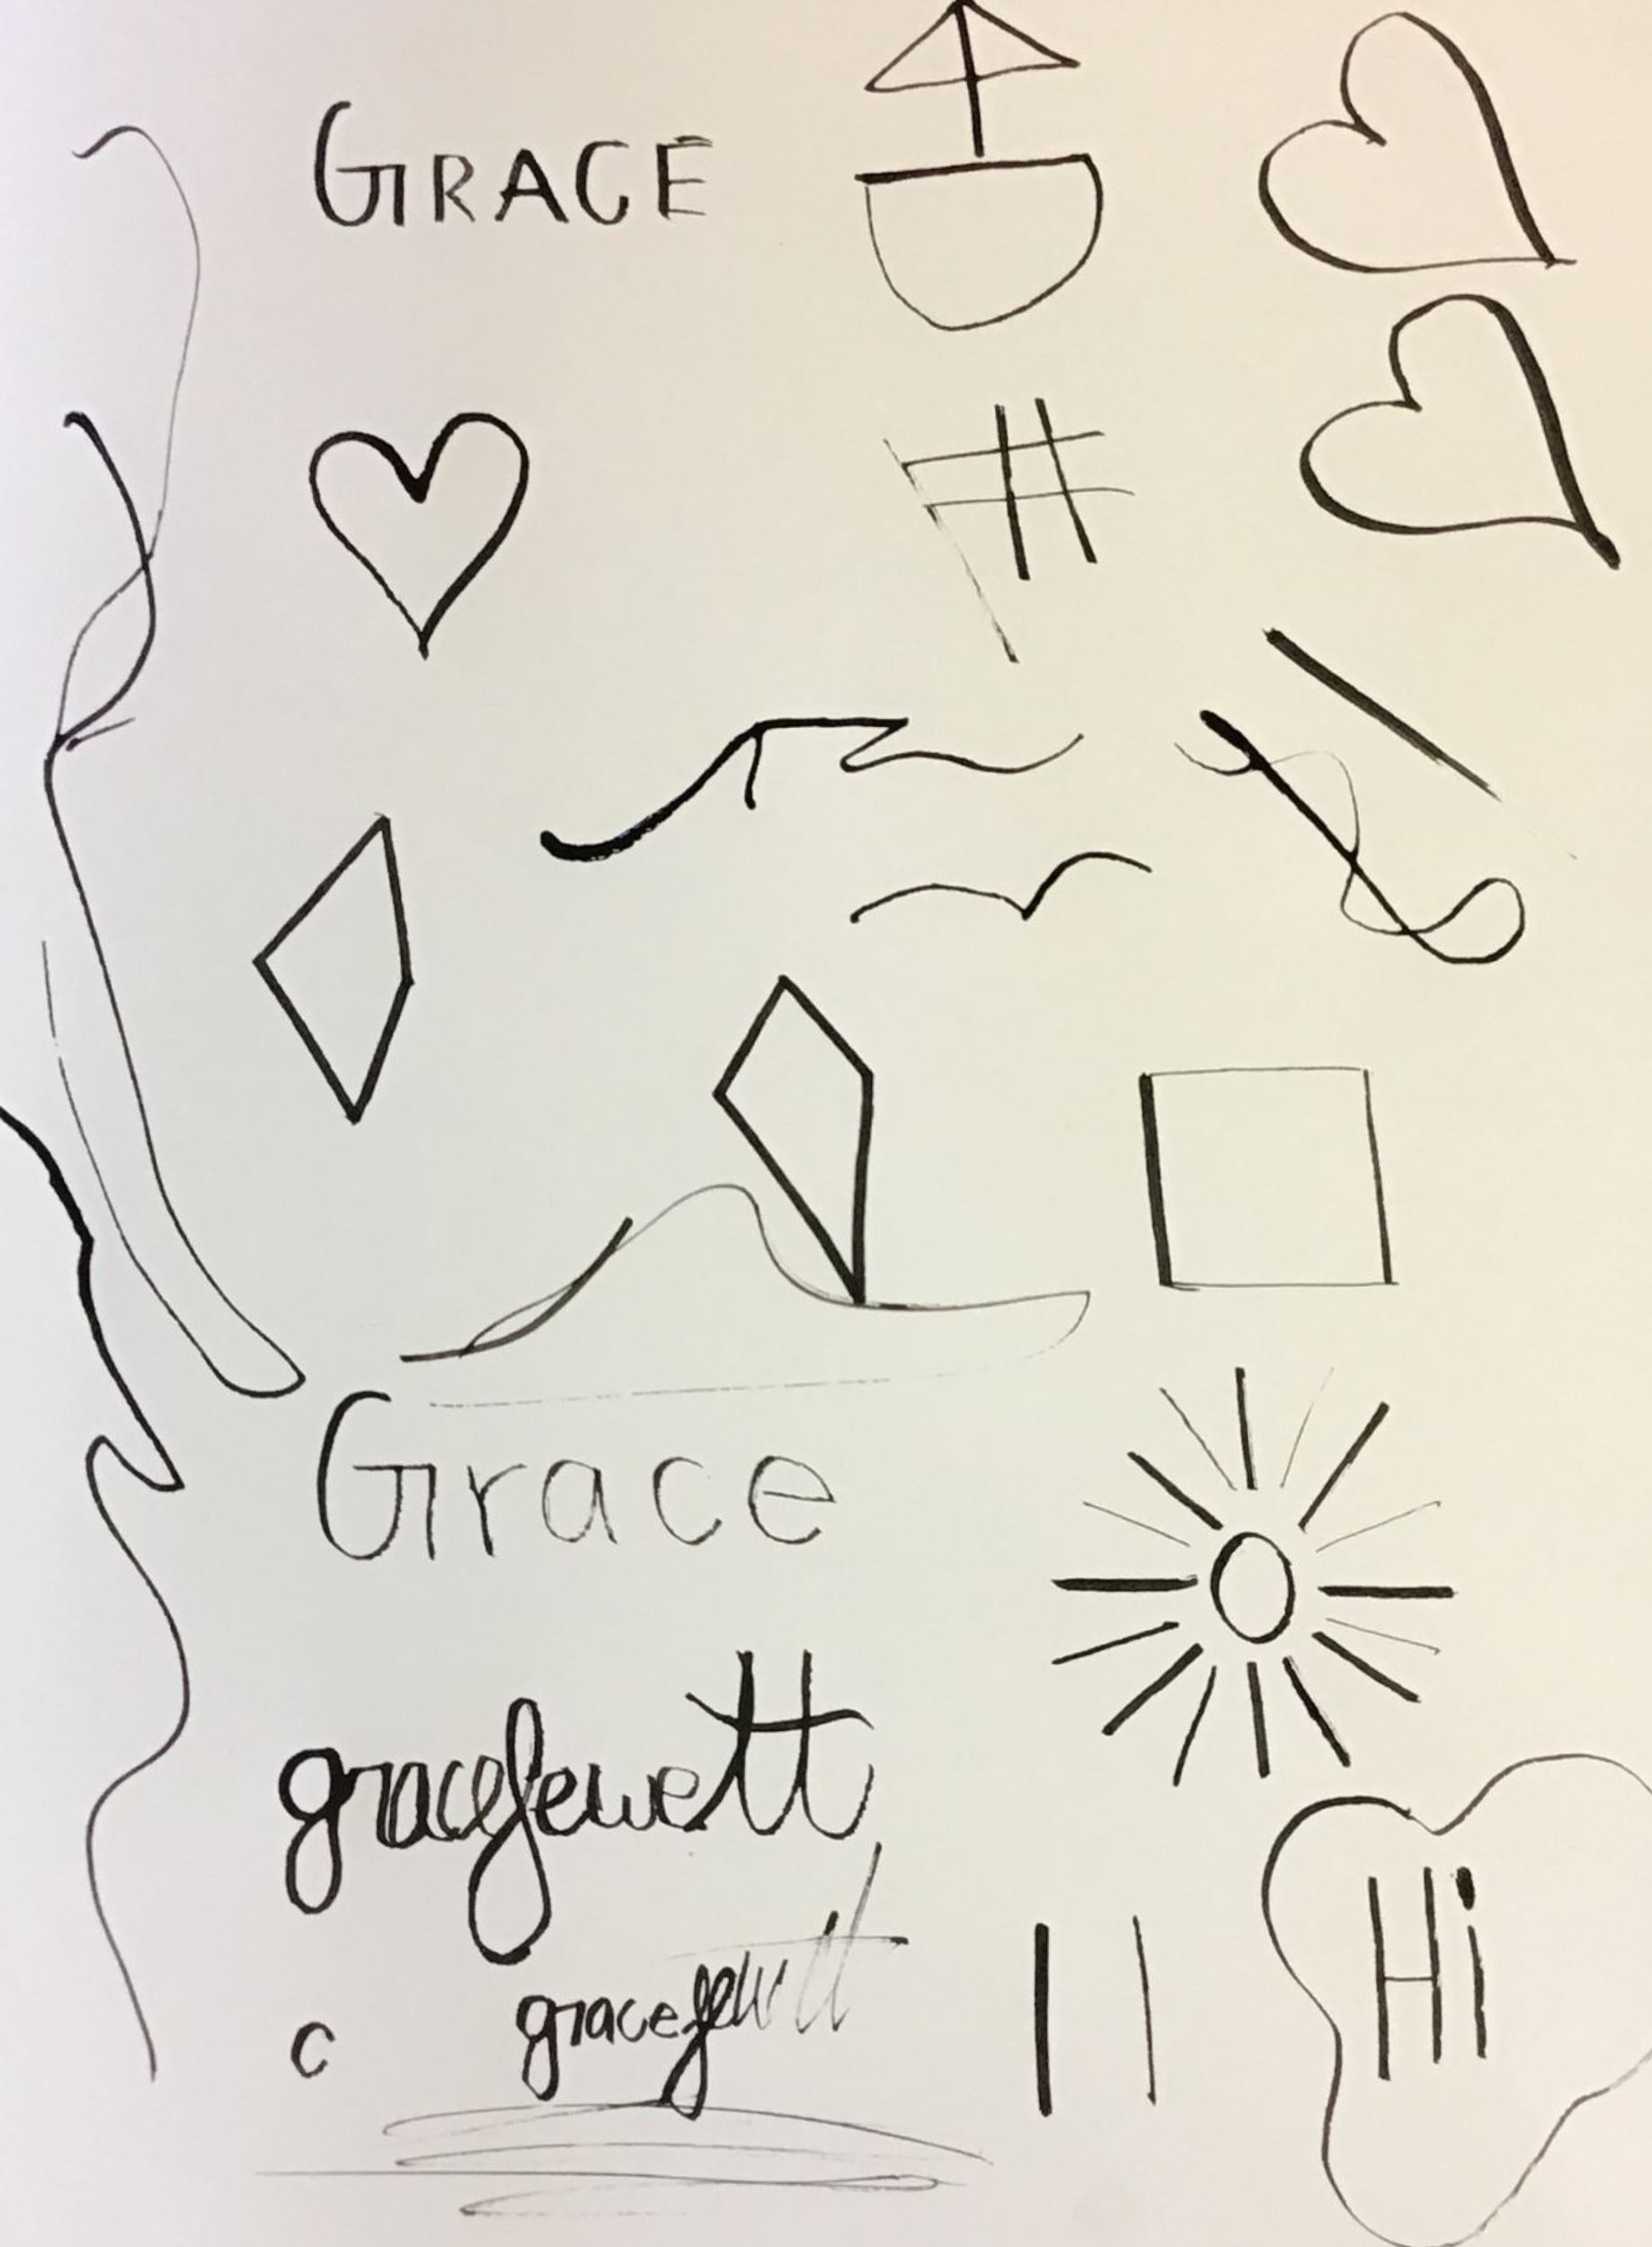 GRACE
#
Grace
gracejewett
Hi
c
gracejewitt